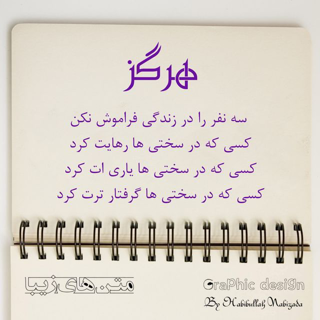 هرگز
سه نفر را در زندگی فراموش نکن
کسی که در سختی ها رهایت کرد
کسی که در سختی ها یاری ات کرد
کسی که در سختی ها گرفتار ترت کرد
متن های زیبا
GraPhic desi9n
By Habibullah Nabizada